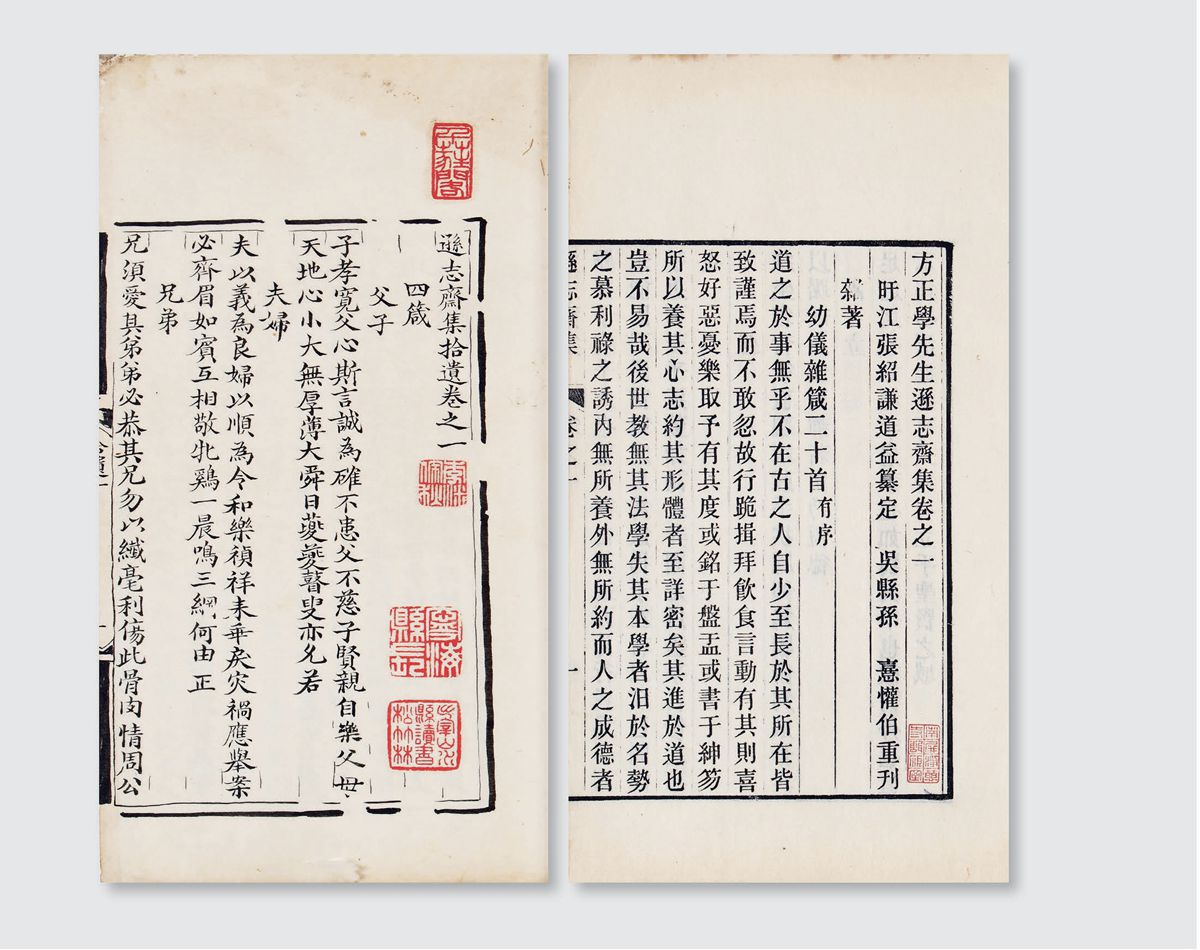 方正學先生遜志齋集卷之一
盱江張紹謙道益纂定 吳縣孫 憙懽伯重刊
雜著
幼儀雜箴二十首有序
道之於事無乎不在古之人自少至長於其所在皆
致謹焉而不敢忽故行跪揖拜飲食言動有其則喜
怒好惡憂樂取予有其度或銘于盤盂或書于紳笏
所以養其心志約其形體者至詳密矣其進於道也
豈不易哉後世教無其法學失其本學者汨於名勢
之慕利祿之誘內無所養外無所約而人之成德者
遜志齋集 卷之一 一
遜志齋集拾遺卷之一
四箴
父子
子孝寬父心斯言誠為確不患父不慈子賢親自樂父母
天地心小大無厚薄大舜日夔夔瞽叟亦允若
夫婦
夫以義為良婦以順為令和樂禎祥来乖戾灾禍應舉案
必齊眉如賓互相敬牝鷄一晨鳴三綱何由正
兄弟
兄須愛其弟弟必恭其兄勿以纖毫利傷此骨肉情周公